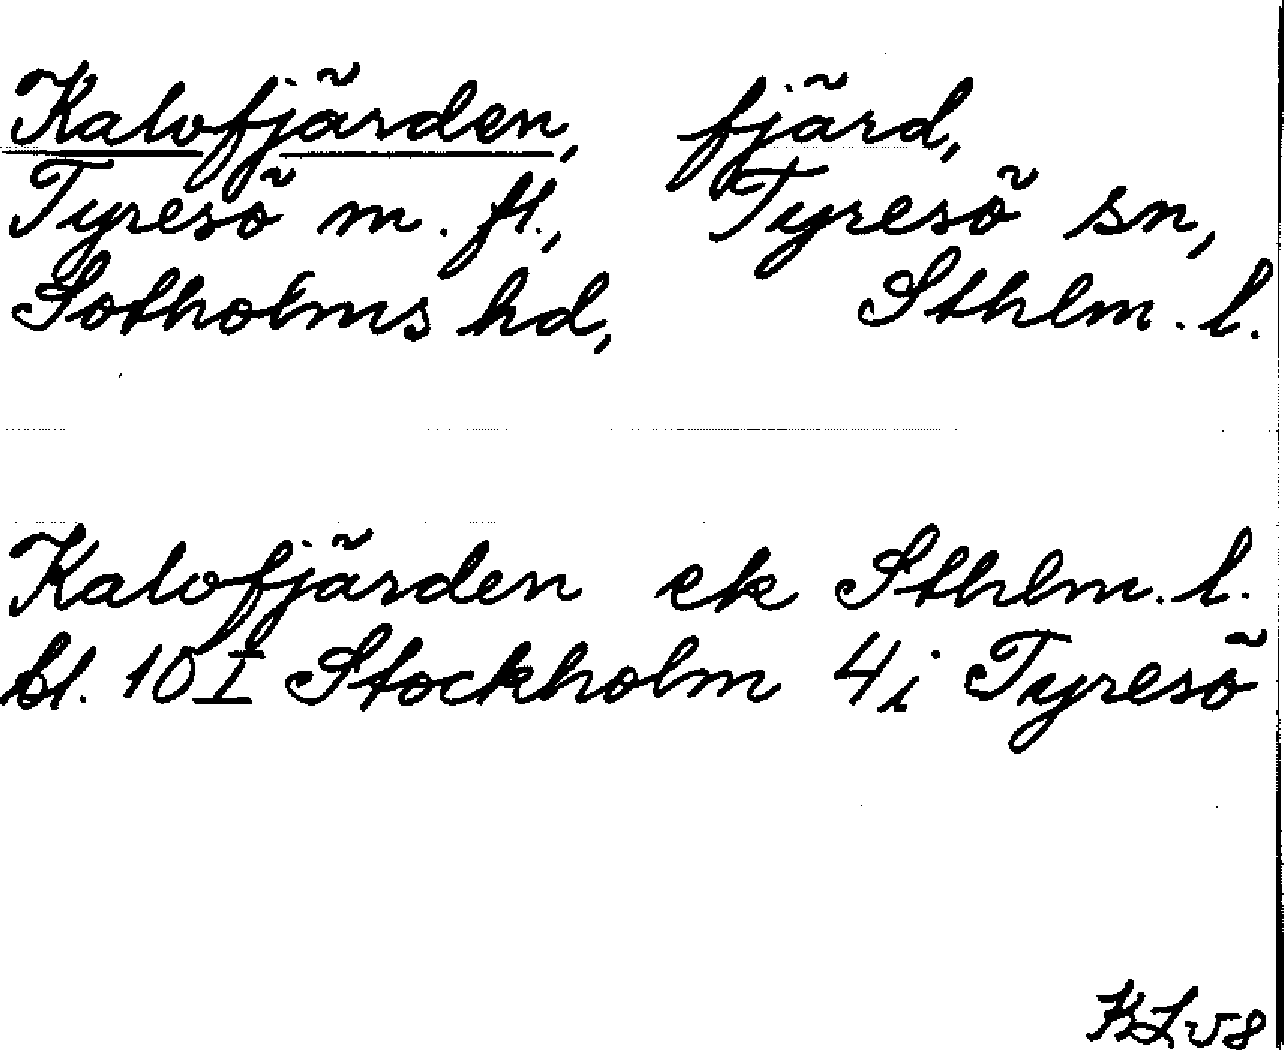 Kalvfjärden, fjärd,
Tyresö m. fl., Tyresö sn,
Sotholms hd, Sthlm. l.
Kalvfjärden ek Sthlm. l.
bl. 10 I Stockholm 4i Tyresö
KL 58